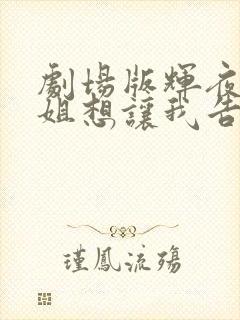 劇場版輝夜
姐想讓我告
瑾鳳流殤